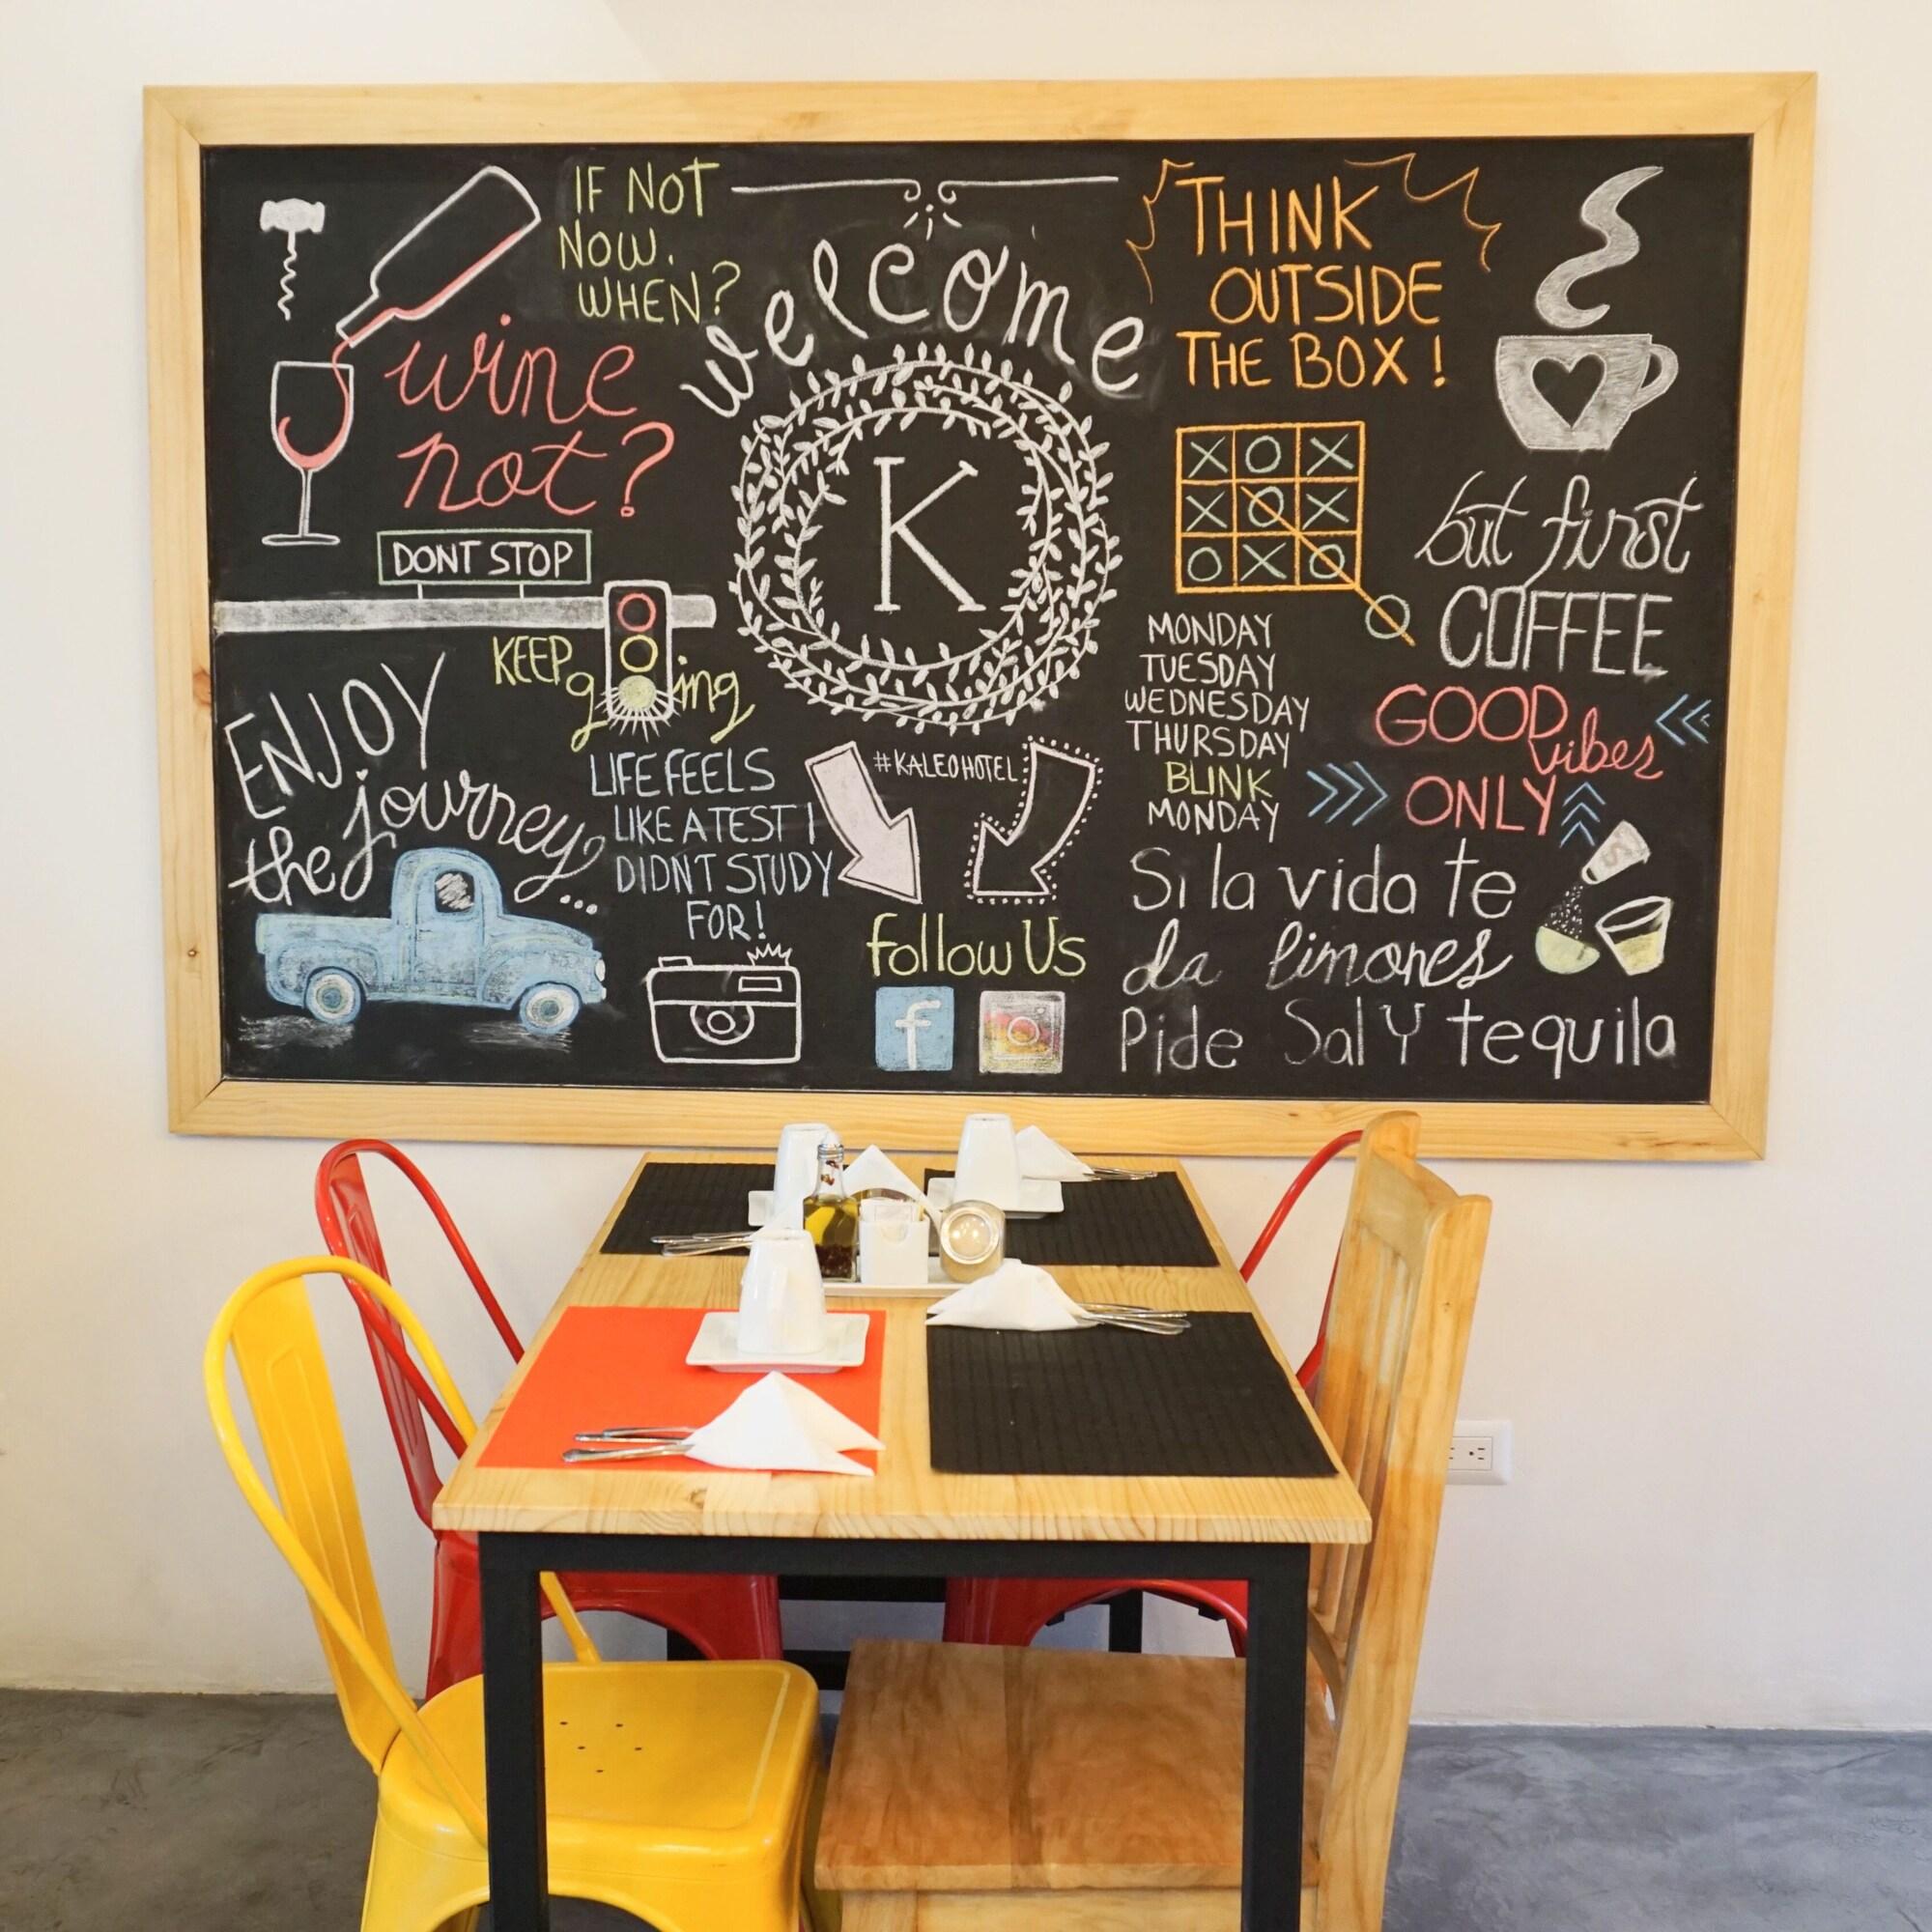 IF NOT
NOW.
WHEN?
wine
not?
DONT STOP
KEEP
going
ENJOY
the journey...
LIFE FEELS
LIKE A TEST I
DIDNT STUDY
FOR!
welcome
K
#KALEOHOTEL
follow Us
f
THINK
OUTSIDE
THE BOX!
X O X
X O X
O X O
O
but first
COFFEE
MONDAY
TUESDAY
WEDNESDAY
THURSDAY
BLINK
MONDAY
GOOD
vibes
ONLY
S
Si la vida te
da limones
Pide Sal Y tequila